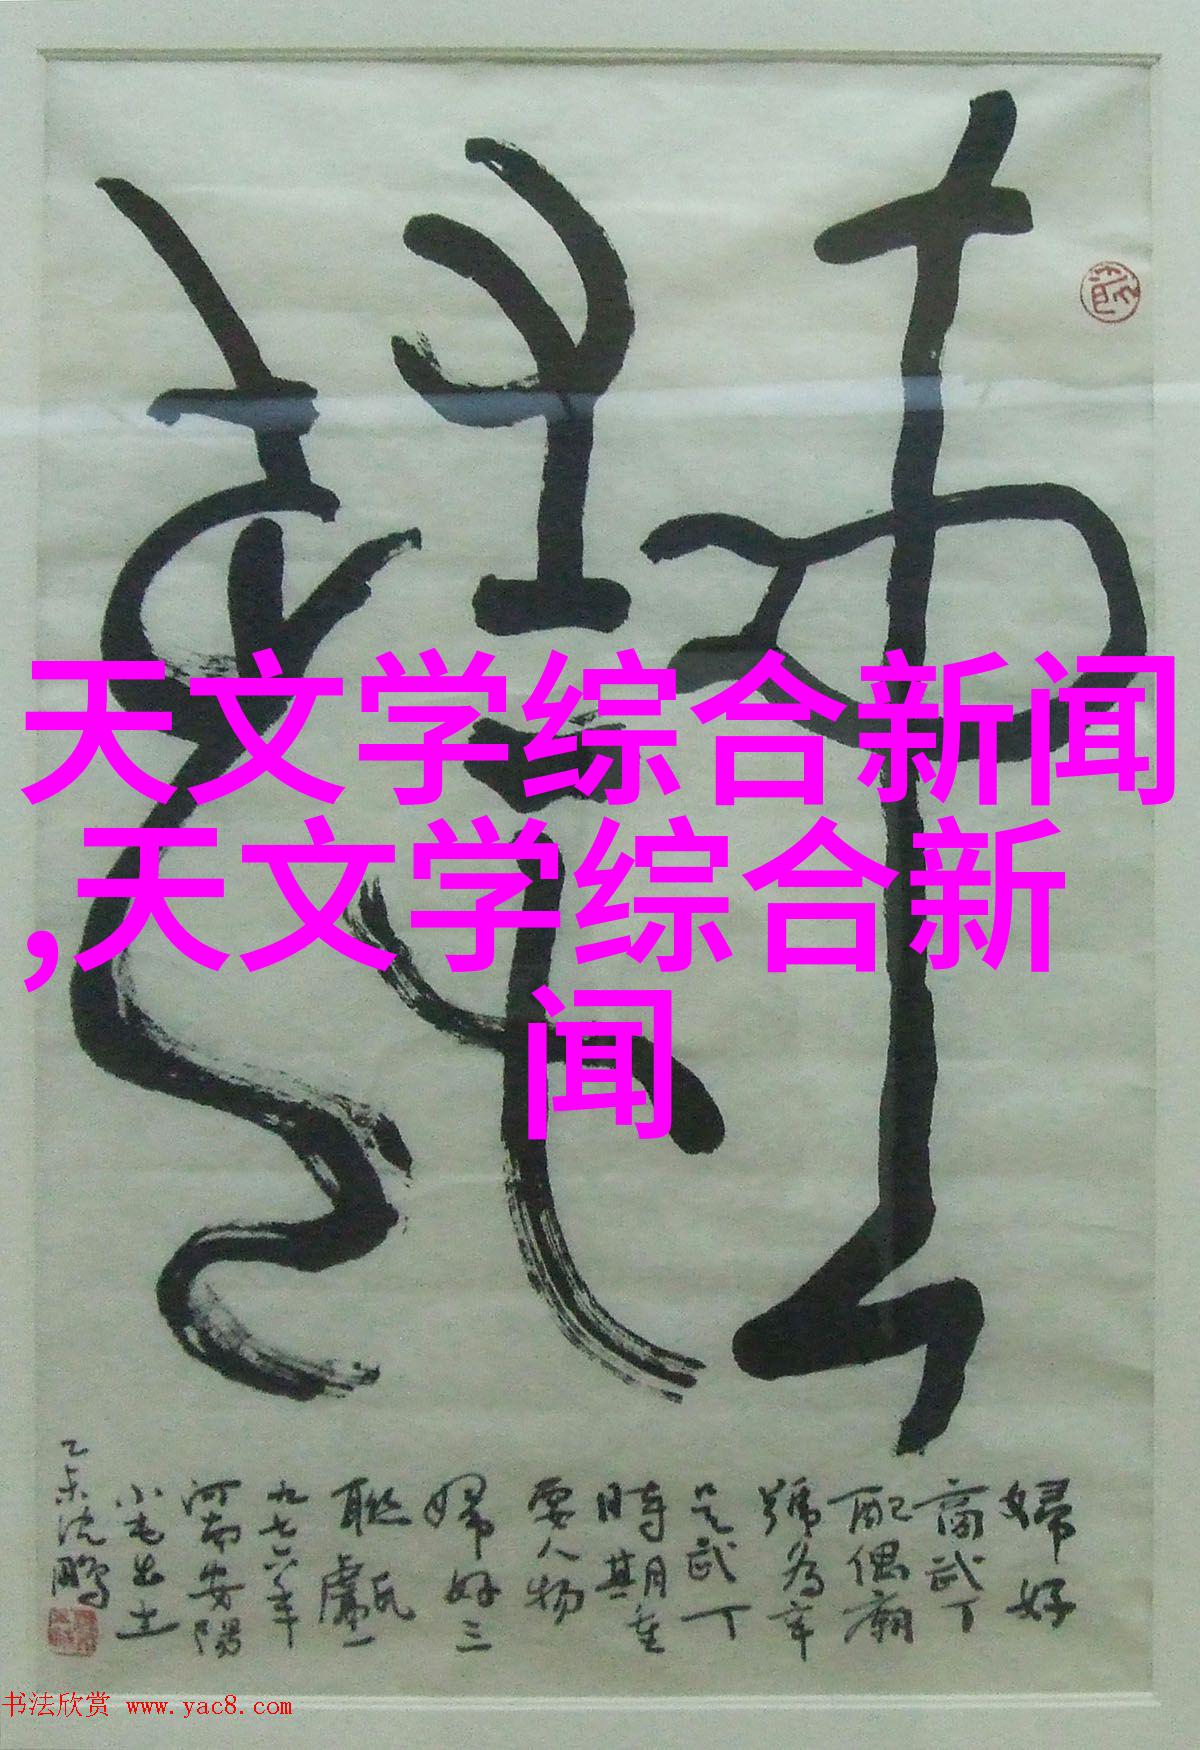 天文学综合新闻
,天文学综合新
闻
婦好
商武丁
配偶廟
號為辛
是武丁
時期重
要人物
婦好三
聯甗一
九七六年
河南安陽
小屯出土
乙未沈鹏
书法欣赏 www.yac8.com